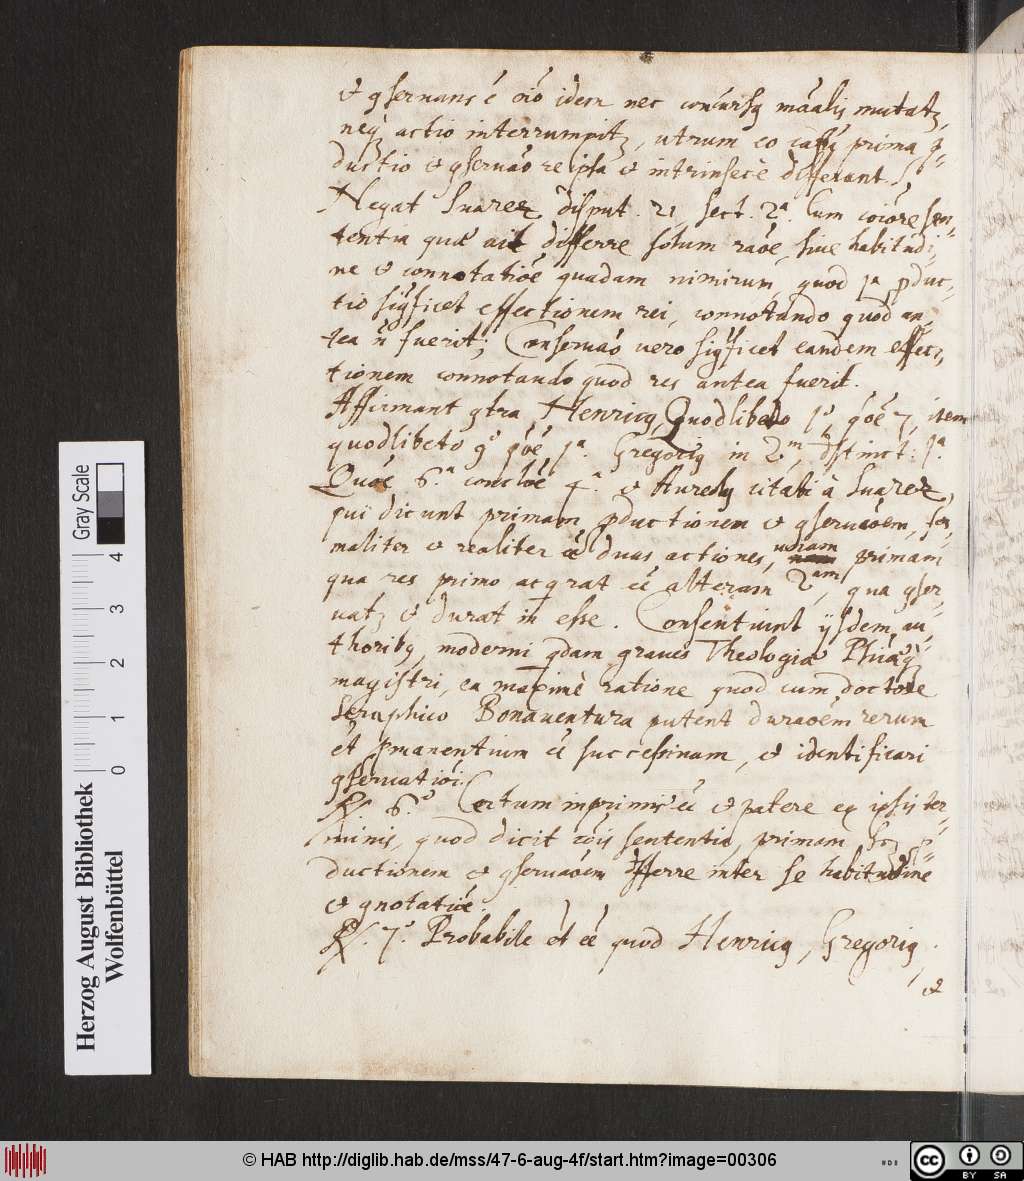 et gseruans ẽ oı̃o idem nec concursq mãalis mutatz,
neq actio interrumpitz, utrum eo casu prima p-
ductio et gseruão re ipsa et intrinsecè differant.
Negat Suarez disput. 21 sect. 2ª. Cum cõiore sen-
tentia quæ ait differre solum raõe, siue habitudi-
ne et connotatiõe quadam nimirum, quod 1ª produc-
tio sigficet effectionem rei, connotando quod an-
tea ñ fuerit; Conseruaõ vero sigficet eandem effec-
tionem connotando quod res antea fuerit.
Affirmant gtra Henricq Quodlibeto 1º qõe 7, item
quodlibeto 9º qõe 1ª. Gregoriq in 2m dstinct. 1ª
Quõe 6ª concloẽ 4ª et Aureolq citati à Suarez,
qui dicunt primam productionem et gseruaõem, for
maliter et realiter eẽ duas actiones, unam primam
qua res primo acqrat eẽ alteram 2am, qua gser-
uatz et durat in esse. Consentiunt ijsdem au-
thoribq, moderni qdam graues Theologiæ Phiæq
magistri, ea maximè ratione quod cum doctore
Seraphico Bonauentura putent duraõem rerum
et pmanentium eẽ successiuam, et identificari
gseruatiõi.
R/. 6º Certum inprimis eẽ et patere ex ipsis ter-
minis, quod dicit cõis sententia, primam scz p-
ductionem et gseruaõem differre inter se habitudine
et gnotatiõe.
R/. 7º. Probabile et eẽ quod Henricq, Gregoriq,
et
Herzog August Bibliothek
Wolfenbüttel
Gray Scale
0 1 2 3 4
© HAB http://diglib.hab.de/mss/47-6-aug-4f/start.htm?image=00306
cc BY SA